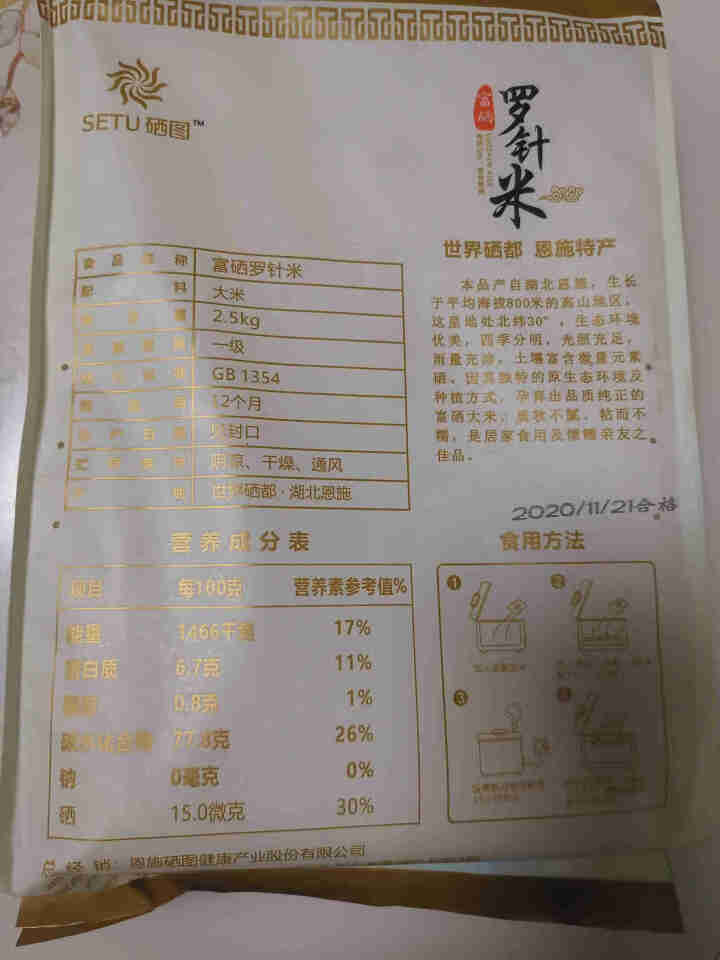 SETU 硒图™
富硒
罗针米
世界硒都 恩施特产
食品名称 富硒罗针米
配 料 大米
2.5kg
一级
GB 1354
12个月
封口
干燥、通风
世界硒都·湖北恩施
本品产自湖北恩施，生长
于平均海拔800米的高山地区，
这里地处北纬30°，生态环境
优美，四季分明，光照充足，
雨量充沛，土壤富含微量元素
硒。因其独特的原生态环境及
种植方式，孕育出品质纯正的
富硒大米；质软不腻、粘而不
糯，是居家食用及馈赠亲友之
佳品。
2020/11/21合格
营养成分表
项目 每100克 营养素参考值%
能量 1466千焦 17%
蛋白质 6.7克 11%
脂肪 0.8克 1%
碳水化合物 77.8克 26%
钠 0毫克 0%
硒 15.0微克 30%
食用方法
1
2
3
4
总经销：恩施硒图健康产业股份有限公司